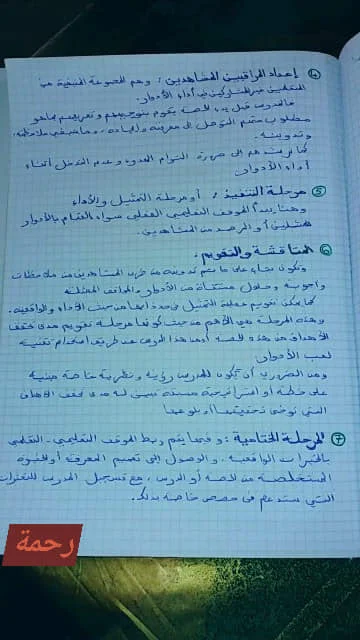 ④ إعداد المراقبين المشاهدين : وهم المجموعة المتبقية من
المتعلمين غير المشاركين في أداء الأدوار.
فالمدرس قبل بدء الحصة يقوم بتوجيههم وتعريفهم بما هو
مطلوب منهم التوصل إلى معرفته وإيجاده، وما ينبغي ملاحظته
وتدوينه.
كما يرشدهم إلى ضرورة التزام الهدوء وعدم التدخل أثناء
أداء الأدوار
⑤ مرحلة التنفيذ : أو مرحلة التمثيل والأداء
وهنا يبدأ الموقف التعليمي الفعلي سواء القيام بالأدوار
للممثلين أو الرصد من المشاهدين.
⑥ المناقشة والتقويم.
وتكون بناء على ما تم تدوينه من طرف المشاهدين من ملاحظات
وأجوبة وحلول مستقاة من الأدوار والمواقف الممثلة
كما يمكن تقويم عملية التمثيل في حد ذاتها من حيث الأداء والواقعية.
وهذه المرحلة هي الأهم من حيث كونها مرحلة تقويم مدى تحقق
الأهداف من هذه الحصة أو من هذا الدرس عن طريق استخدام تقنية
لعب الأدوار
ومن الضروري أن تكون للمدرس رؤية ونظرية خاصة مبنية
على خطة أو استراتيجية تبين له مدى تحقق الأهداف
التي توخى تحقيقها أو بلوغها
⑦ المرحلة الختامية : وفيها يتم ربط الموقف التعليمي - التعلمي
بالخبرات الواقعية، والوصول إلى تعميم المعرفة أو الخبرة
المستخلصة من الحصة أو الدرس، مع تسجيل المدرس للثغرات
التي ستدعم في حصص خاصة بذلك.
رحمة